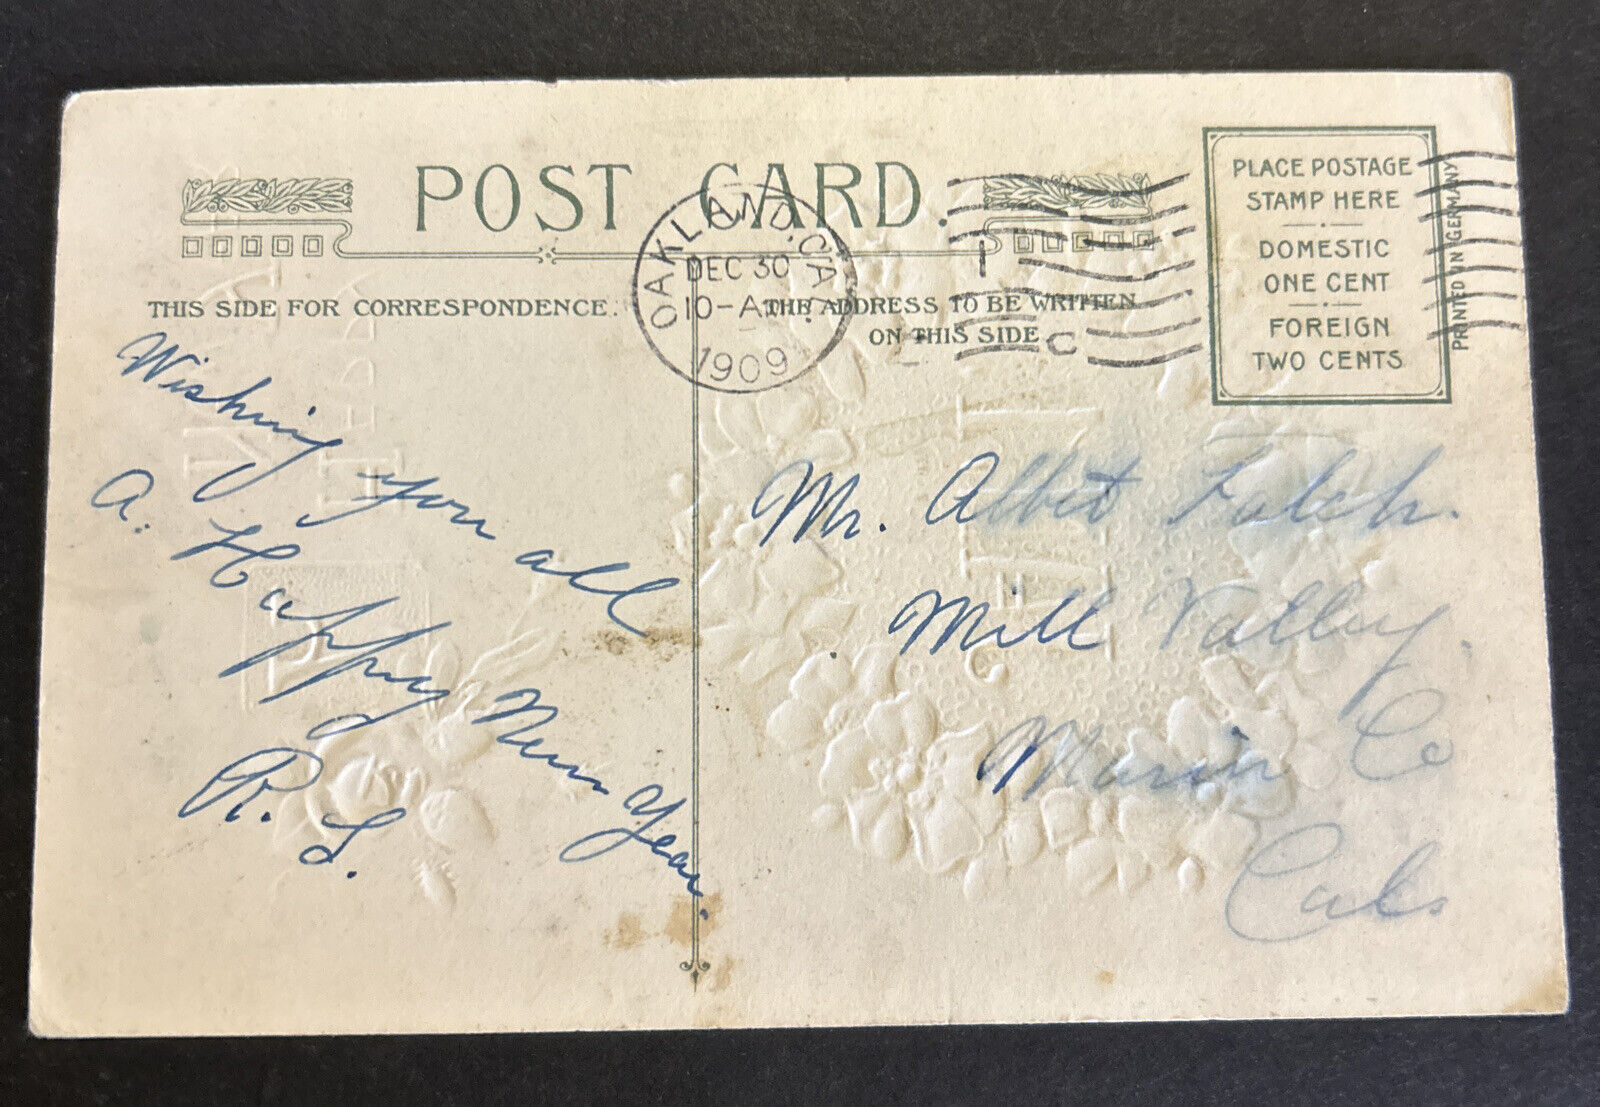 POST CARD.
THIS SIDE FOR CORRESPONDENCE.
THE ADDRESS TO BE WRITTEN
ON THIS SIDE
OAKLAND, CAL.
DEC 30
10-A
1909
C
PLACE POSTAGE
STAMP HERE
DOMESTIC
ONE CENT
FOREIGN
TWO CENTS
PRINTED IN GERMANY
Wishing you all
A. Happy New Year.
R. S.
Mr. Albert
Mill Valley.
Marin Co
Cal.